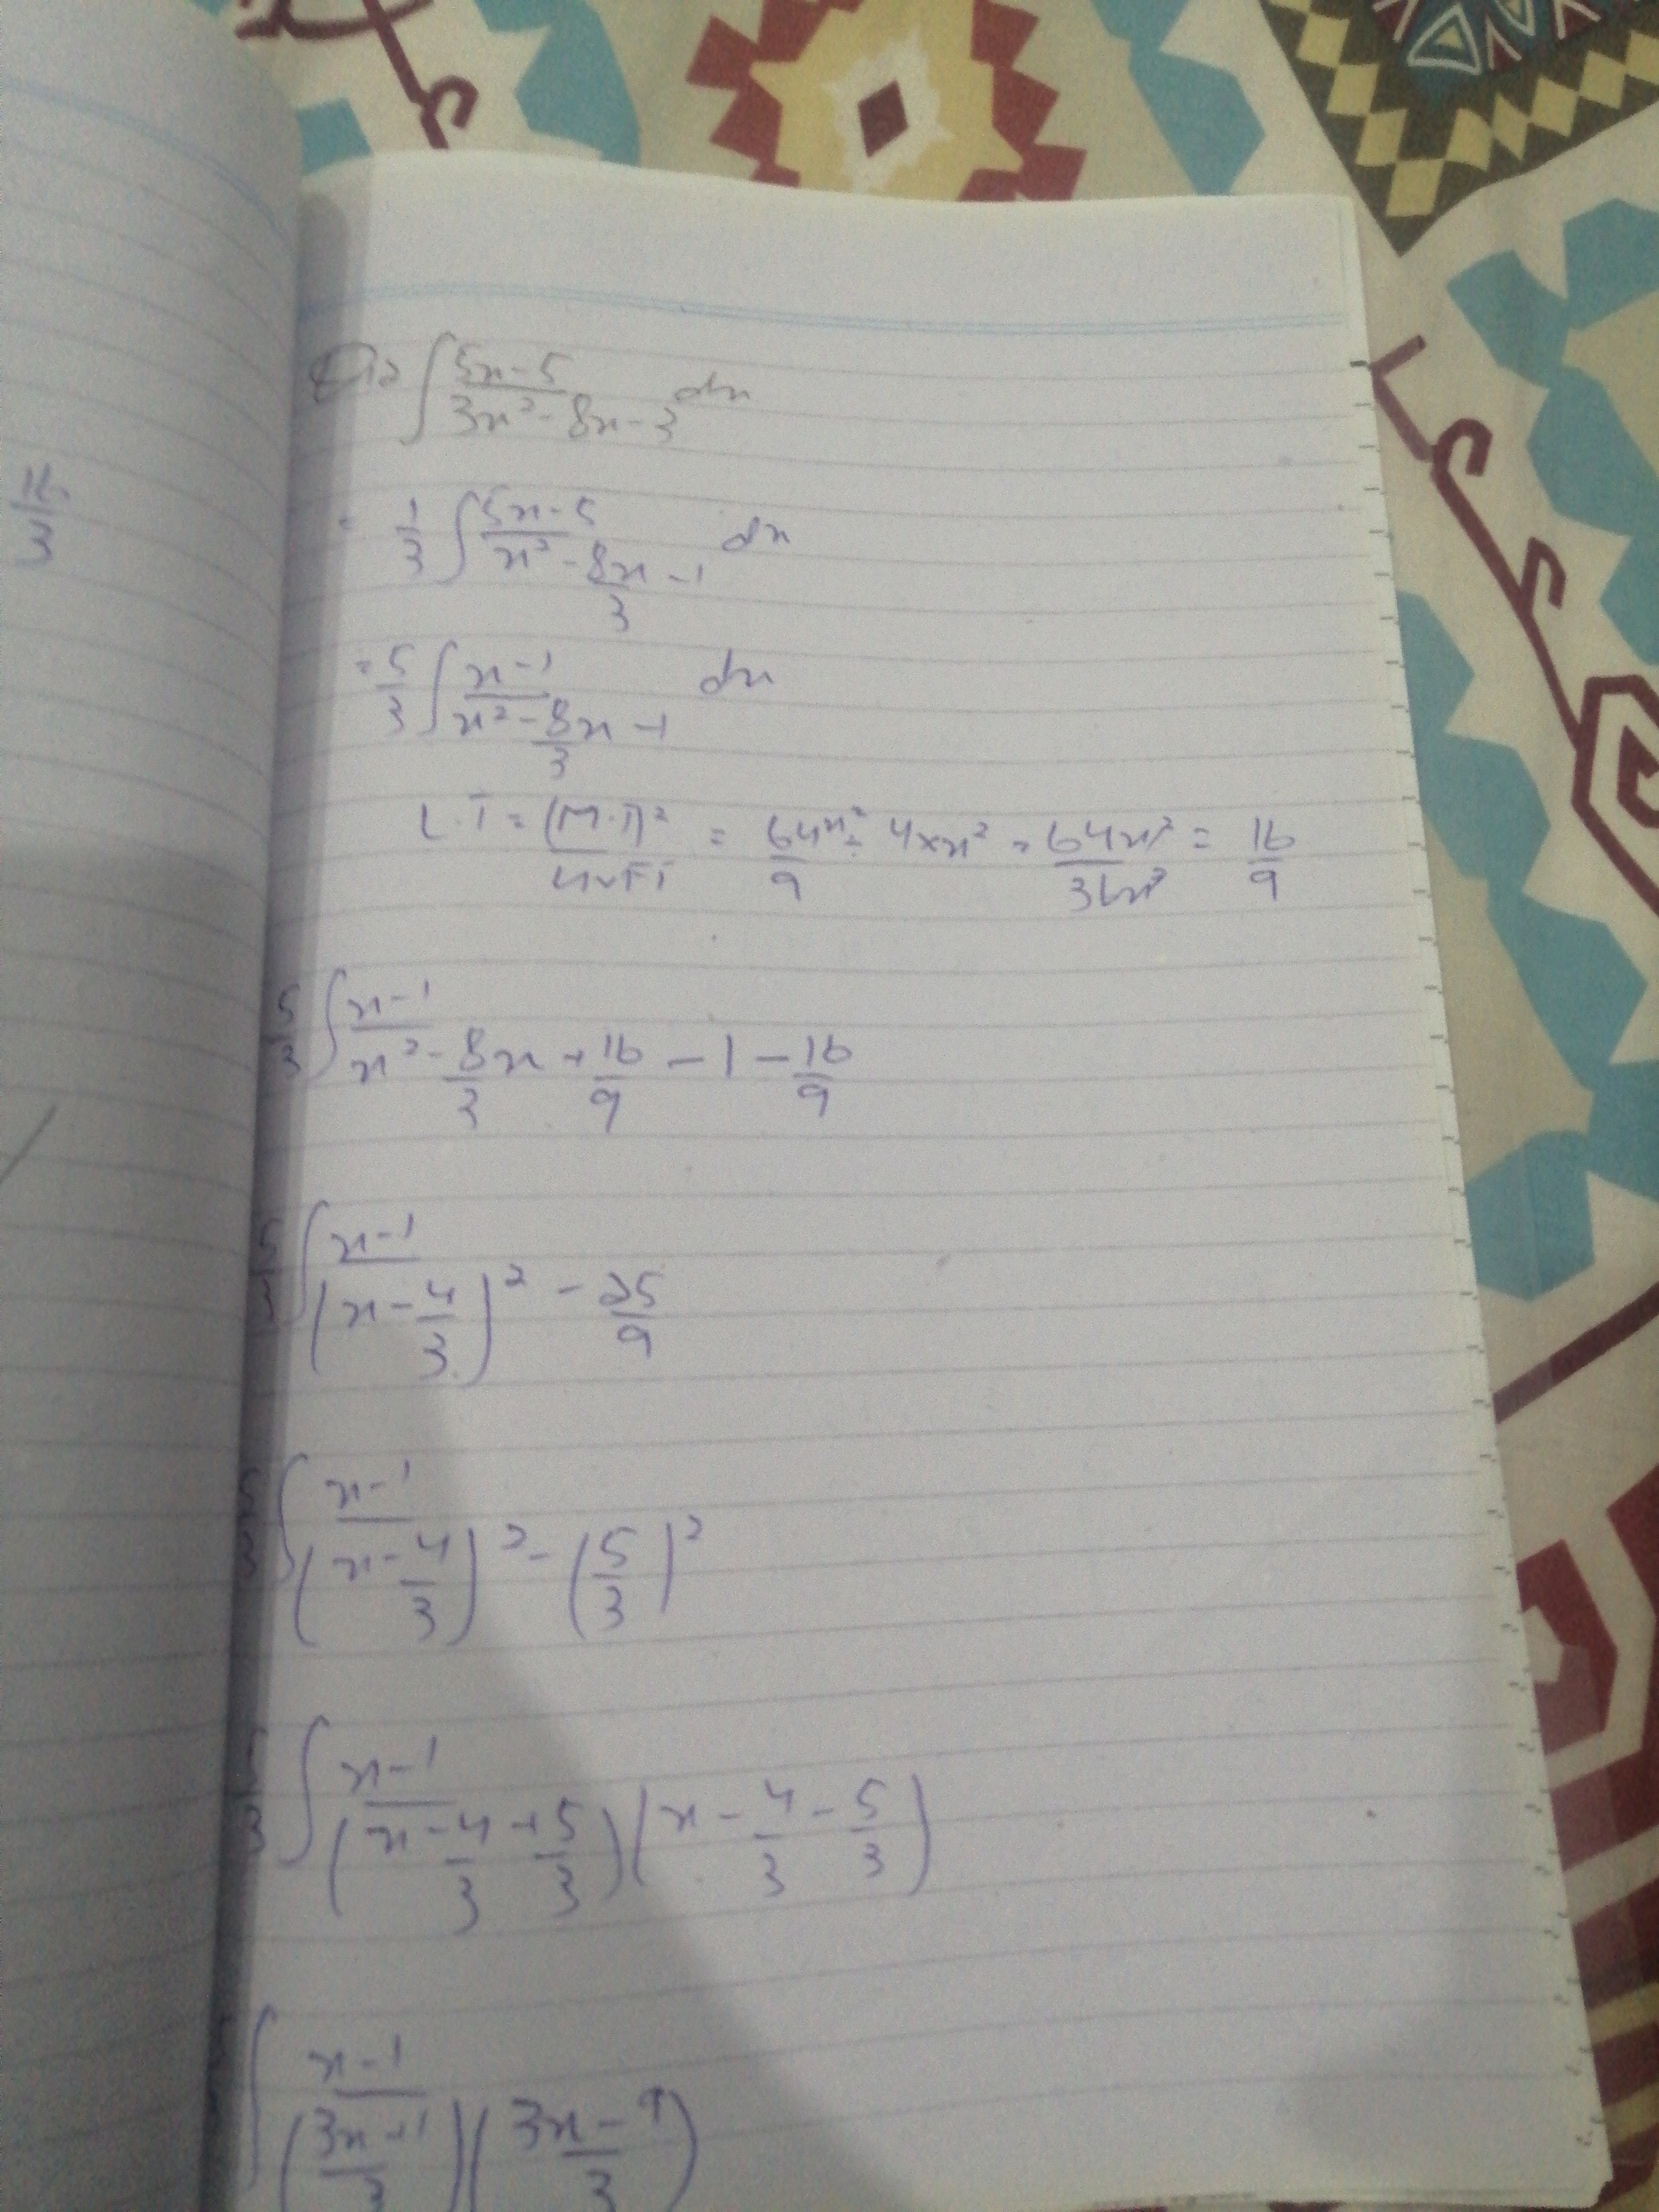 Q12 ∫ (5x-5)/(3x²-8x-3) dx
= 1/3 ∫ (5x-5)/(x² - 8x/3 - 1) dx
= 5/3 ∫ (x-1)/(x² - 8/3 x - 1) dx
L.T = (M.T)²/(4×FT) = 64x²/9 ÷ 4×x² = 64x²/36x² = 16/9
5/3 ∫ (x-1)/(x² - 8/3 x + 16/9 - 1 - 16/9)
5/3 ∫ (x-1)/((x - 4/3)² - 25/9)
5/3 ∫ (x-1)/((x - 4/3)² - (5/3)²)
5/3 ∫ (x-1)/((x - 4/3 + 5/3)(x - 4/3 - 5/3))
∫ (x-1)/(((3x+1)/3)((3x-9)/3))